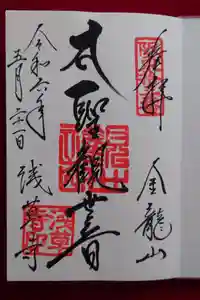 奉拝
金龍山
聖観世音
令和六年
五月二日
浅草寺